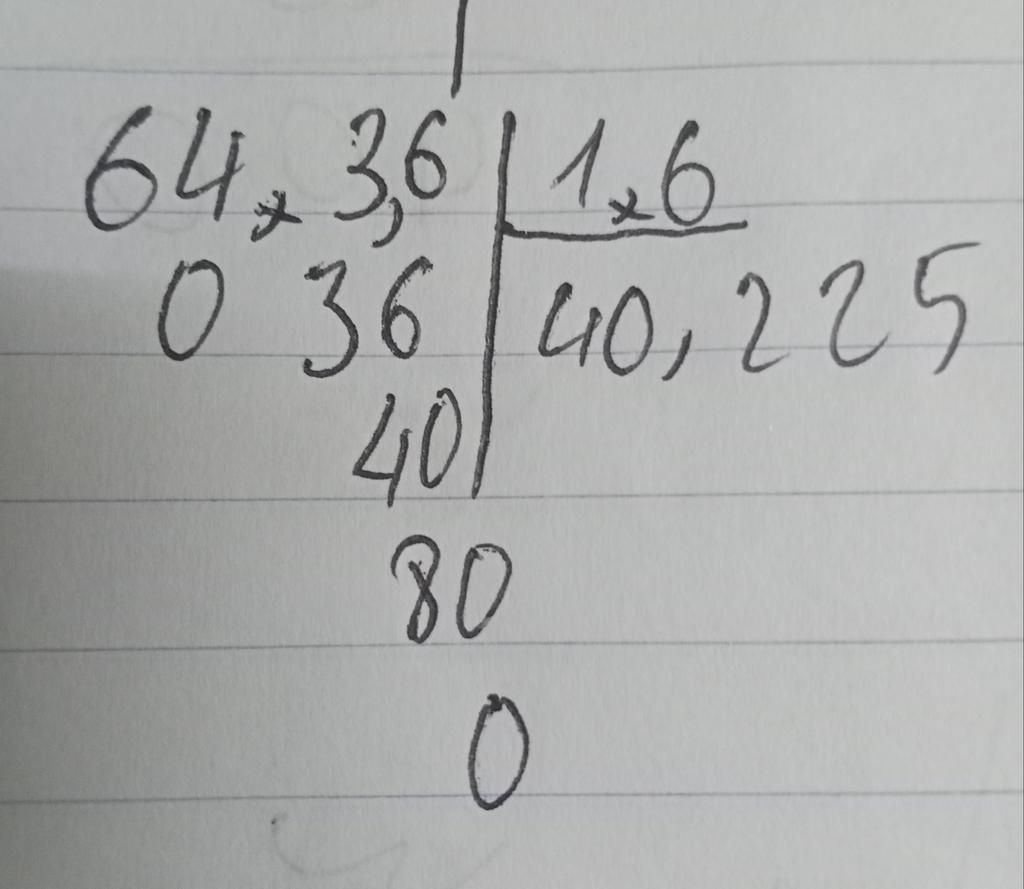 64,3,6 | 1,6
0 36 | 40,225
40
80
0